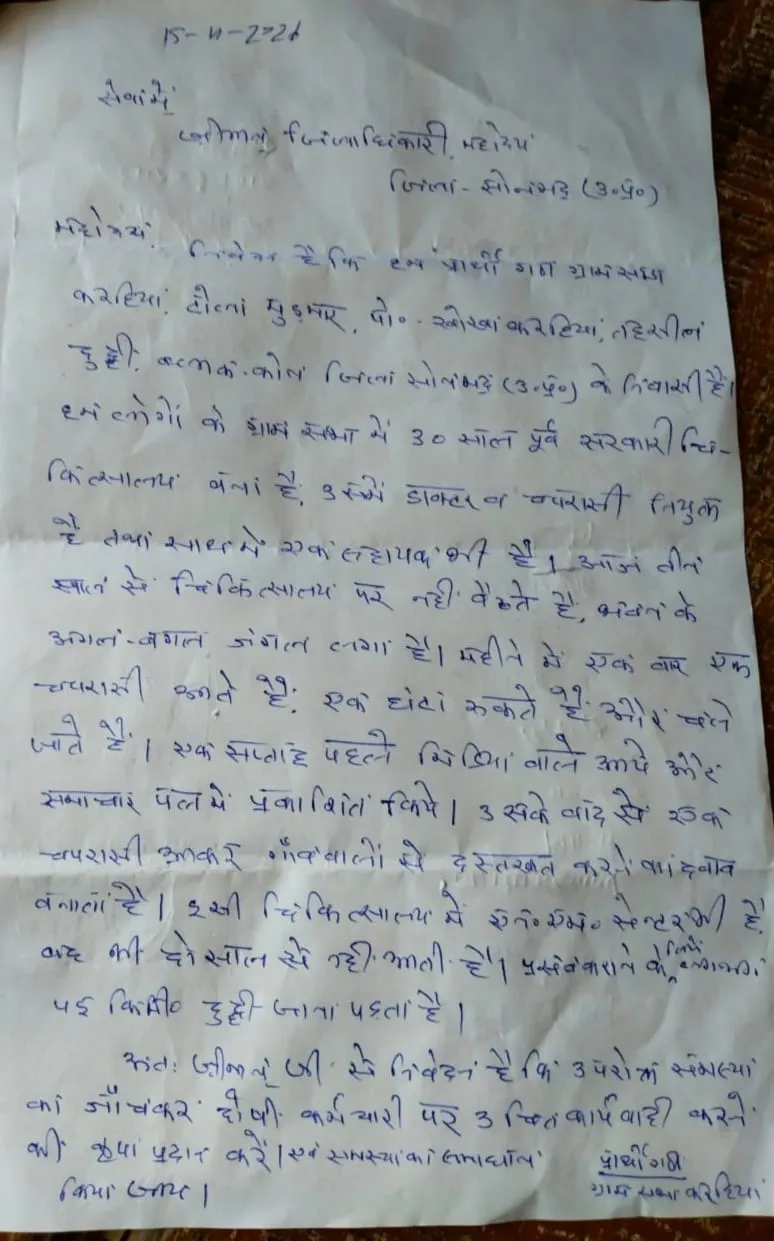 15-11-2021
सेवामें
श्रीमान् जिलाधिकारी, महोदय
जिला - सोनभद्र (उ॰प्र॰)
महोदय,
निवेदन है कि हम प्रार्थी गण ग्राम सभा
करहिया, टोला मुड़मार, पो॰ - खोखा करहिया, तहसील
दुद्धी, ब्लाक-कोन जिला सोनभद्र (उ॰प्र॰) के निवासी है।
हम लोगो के ग्राम सभा में 30 साल पूर्व सरकारी चि-
कित्सालय बना है, उसमें डाक्टर व चपरासी नियुक्त
है तथा साथ में एक सहायक भी है। आज तीन
साल से चिकित्सालय पर नहीं बैठते है, भवन के
अगल-बगल जंगल लगा है। महीने में एक बार एक
चपरासी आते है, एक घंटा रूकते हैं और चले
जाते हैं। एक सप्ताह पहले मिडिया वाले आये और
समाचार पत्र में प्रकाशित किये। उसके बाद से एक
चपरासी आकर गाँववालों से दस्तखत करने का दबाव
बनाता है। इसी चिकित्सालय में ए॰एन॰एम॰ सेन्टर भी है,
वह भी दो साल से नही आती है। प्रसव कराने के लिये लगभग
पड़ कि॰मी॰ दुद्धी जाना पड़ता है।
अतः श्रीमान् जी से निवेदन है कि उपरोक्त समस्या
का जाँच कर दोषी कर्मचारी पर उचित कार्यवाही करने
की कृपा प्रदान करें। एवं समस्या का समाधान
किया जाय।
प्रार्थी गण
ग्राम सभा करहिया